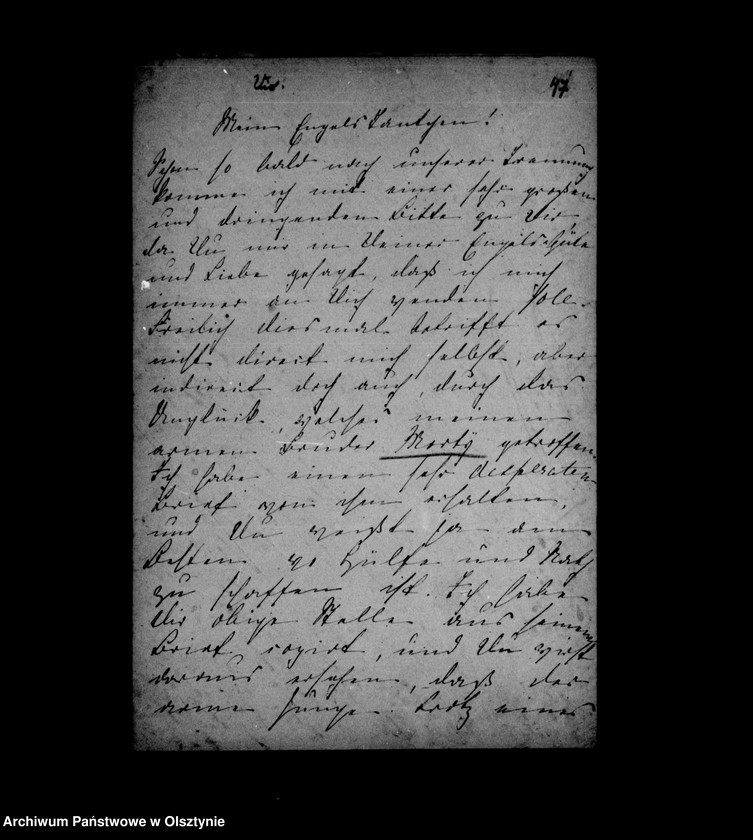 47
Mein Engels Tantchen!
Schon so bald nach unserer Trennung
komme ich mit einer sehr großen
und dringenden Bitte zu Dir
da Du mir in Deiner Engelsgüte
und Liebe gesagt, daß ich mich
immer an Dich wenden soll.
Freilich diesmal betrifft es
nicht direct mich selbst, aber
indirect doch auch, durch das
Unglück, welches meinen
armen Bruder Morty getroffen.
Ich habe einen sehr desperaten
Brief von ihm erhalten,
und Du weißt ja am
Besten wo Hülfe und Rath
zu schaffen ist. Ich habe
Dir obige Stelle aus seinem
Brief copirt, und Du wirst
daraus ersehen, daß der
arme Junge trotz eines
Archiwum Państwowe w Olsztynie